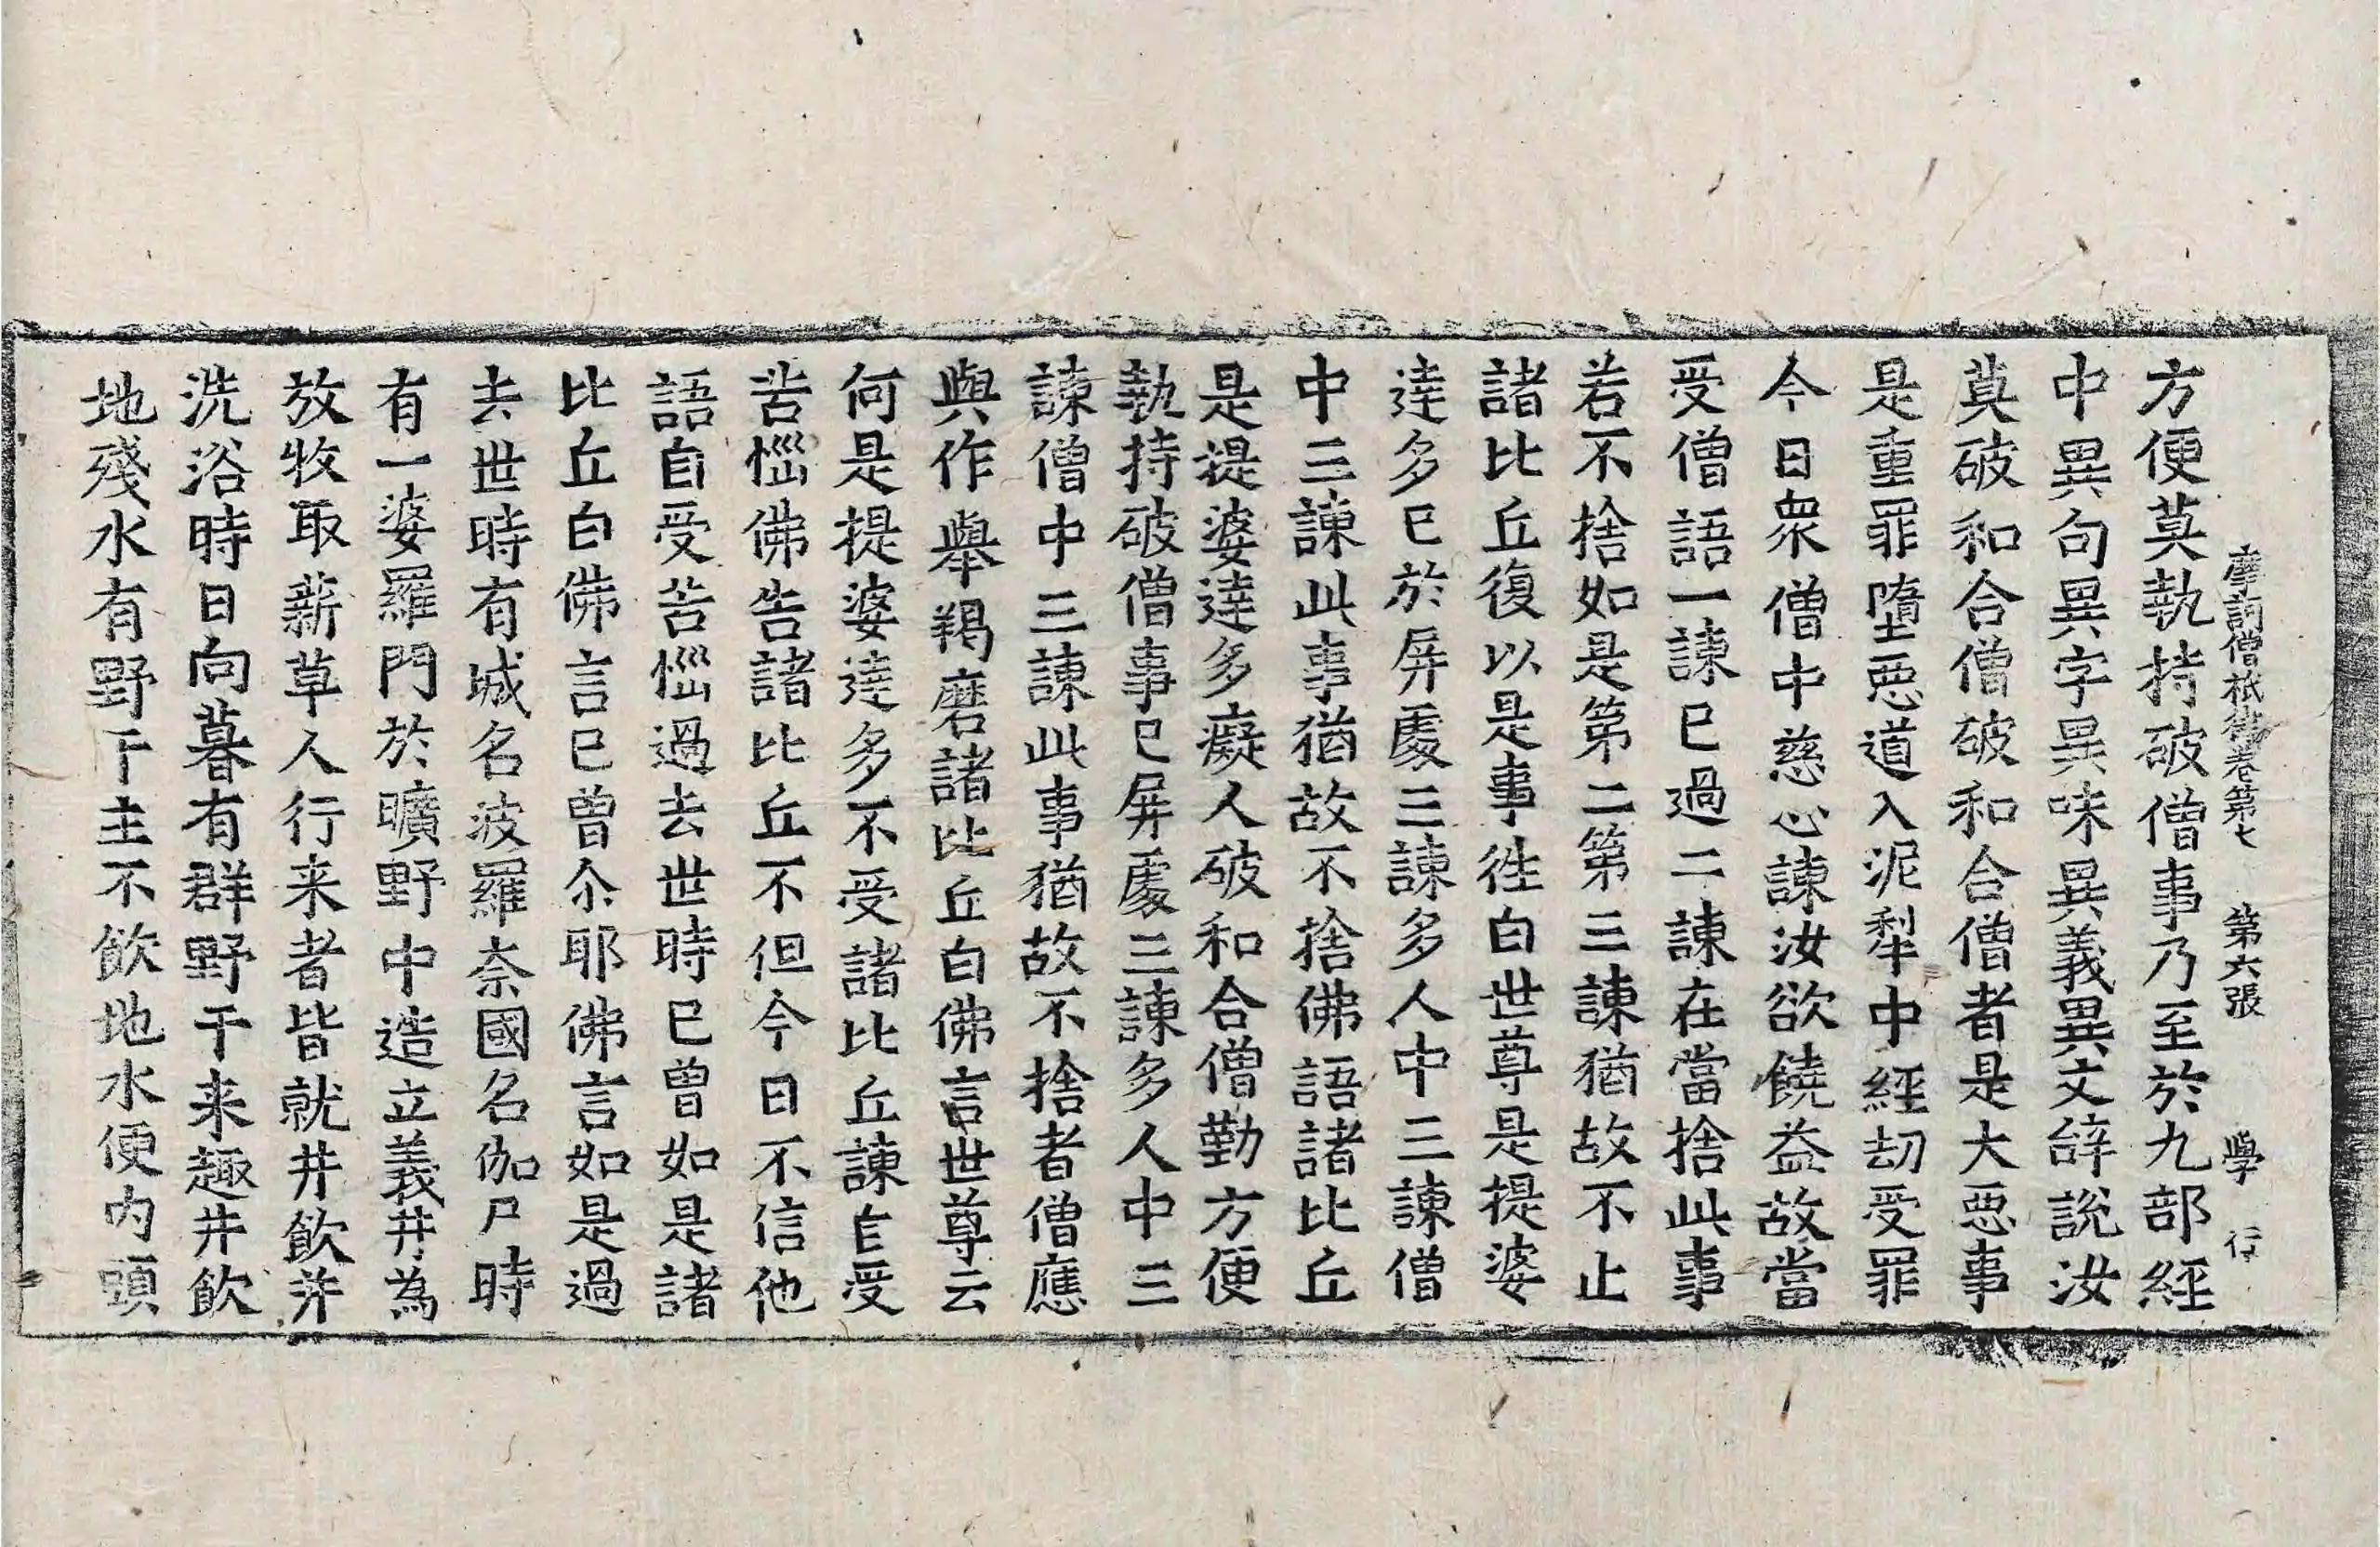 摩訶僧祇律卷第七 第六張 學 行
方便莫執持破僧事乃至於九部經
中異句異字異味異義異文辞說汝
莫破和合僧破和合僧者是大惡事
是重罪墮惡道入泥犁中經劫受罪
今日衆僧中慈心諫汝欲饒益故當
受僧語一諫已過二諫在當捨此事
若不捨如是第二第三諫猶故不止
諸比丘復以是事徃白世尊是提婆
達多已於屏處三諫多人中三諫僧
中三諫此事猶故不捨佛語諸比丘
是提婆達多癡人破和合僧勤方便
執持破僧事已屏處三諫多人中三
諫僧中三諫此事猶故不捨者僧應
與作舉羯磨諸比丘白佛言世尊云
何是提婆達多不受諸比丘諫自受
苦惱佛告諸比丘不但今日不信他
語自受苦惱過去世時已曾如是諸
比丘白佛言已曾尒耶佛言如是過
去世時有城名波羅奈國名伽尸時
有一婆羅門於曠野中造立義井為
放牧取薪草人行来者皆就井飲并
洗浴時日向暮有群野干来趣井飲
地殘水有野干主不飲地水便內頭